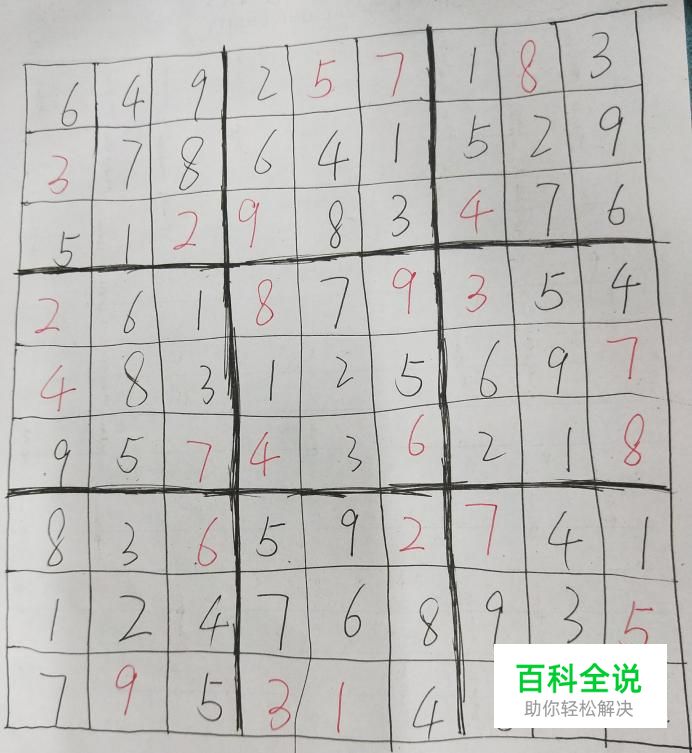 6 4 9 2 5 7 1 8 3
3 7 8 6 4 1 5 2 9
5 1 2 9 8 3 4 7 6
2 6 1 8 7 9 3 5 4
4 8 3 1 2 5 6 9 7
9 5 7 4 3 6 2 1 8
8 3 6 5 9 2 7 4 1
1 2 4 7 6 8 9 3 5
7 9 5 3 1 4
百科全说
助你轻松解决